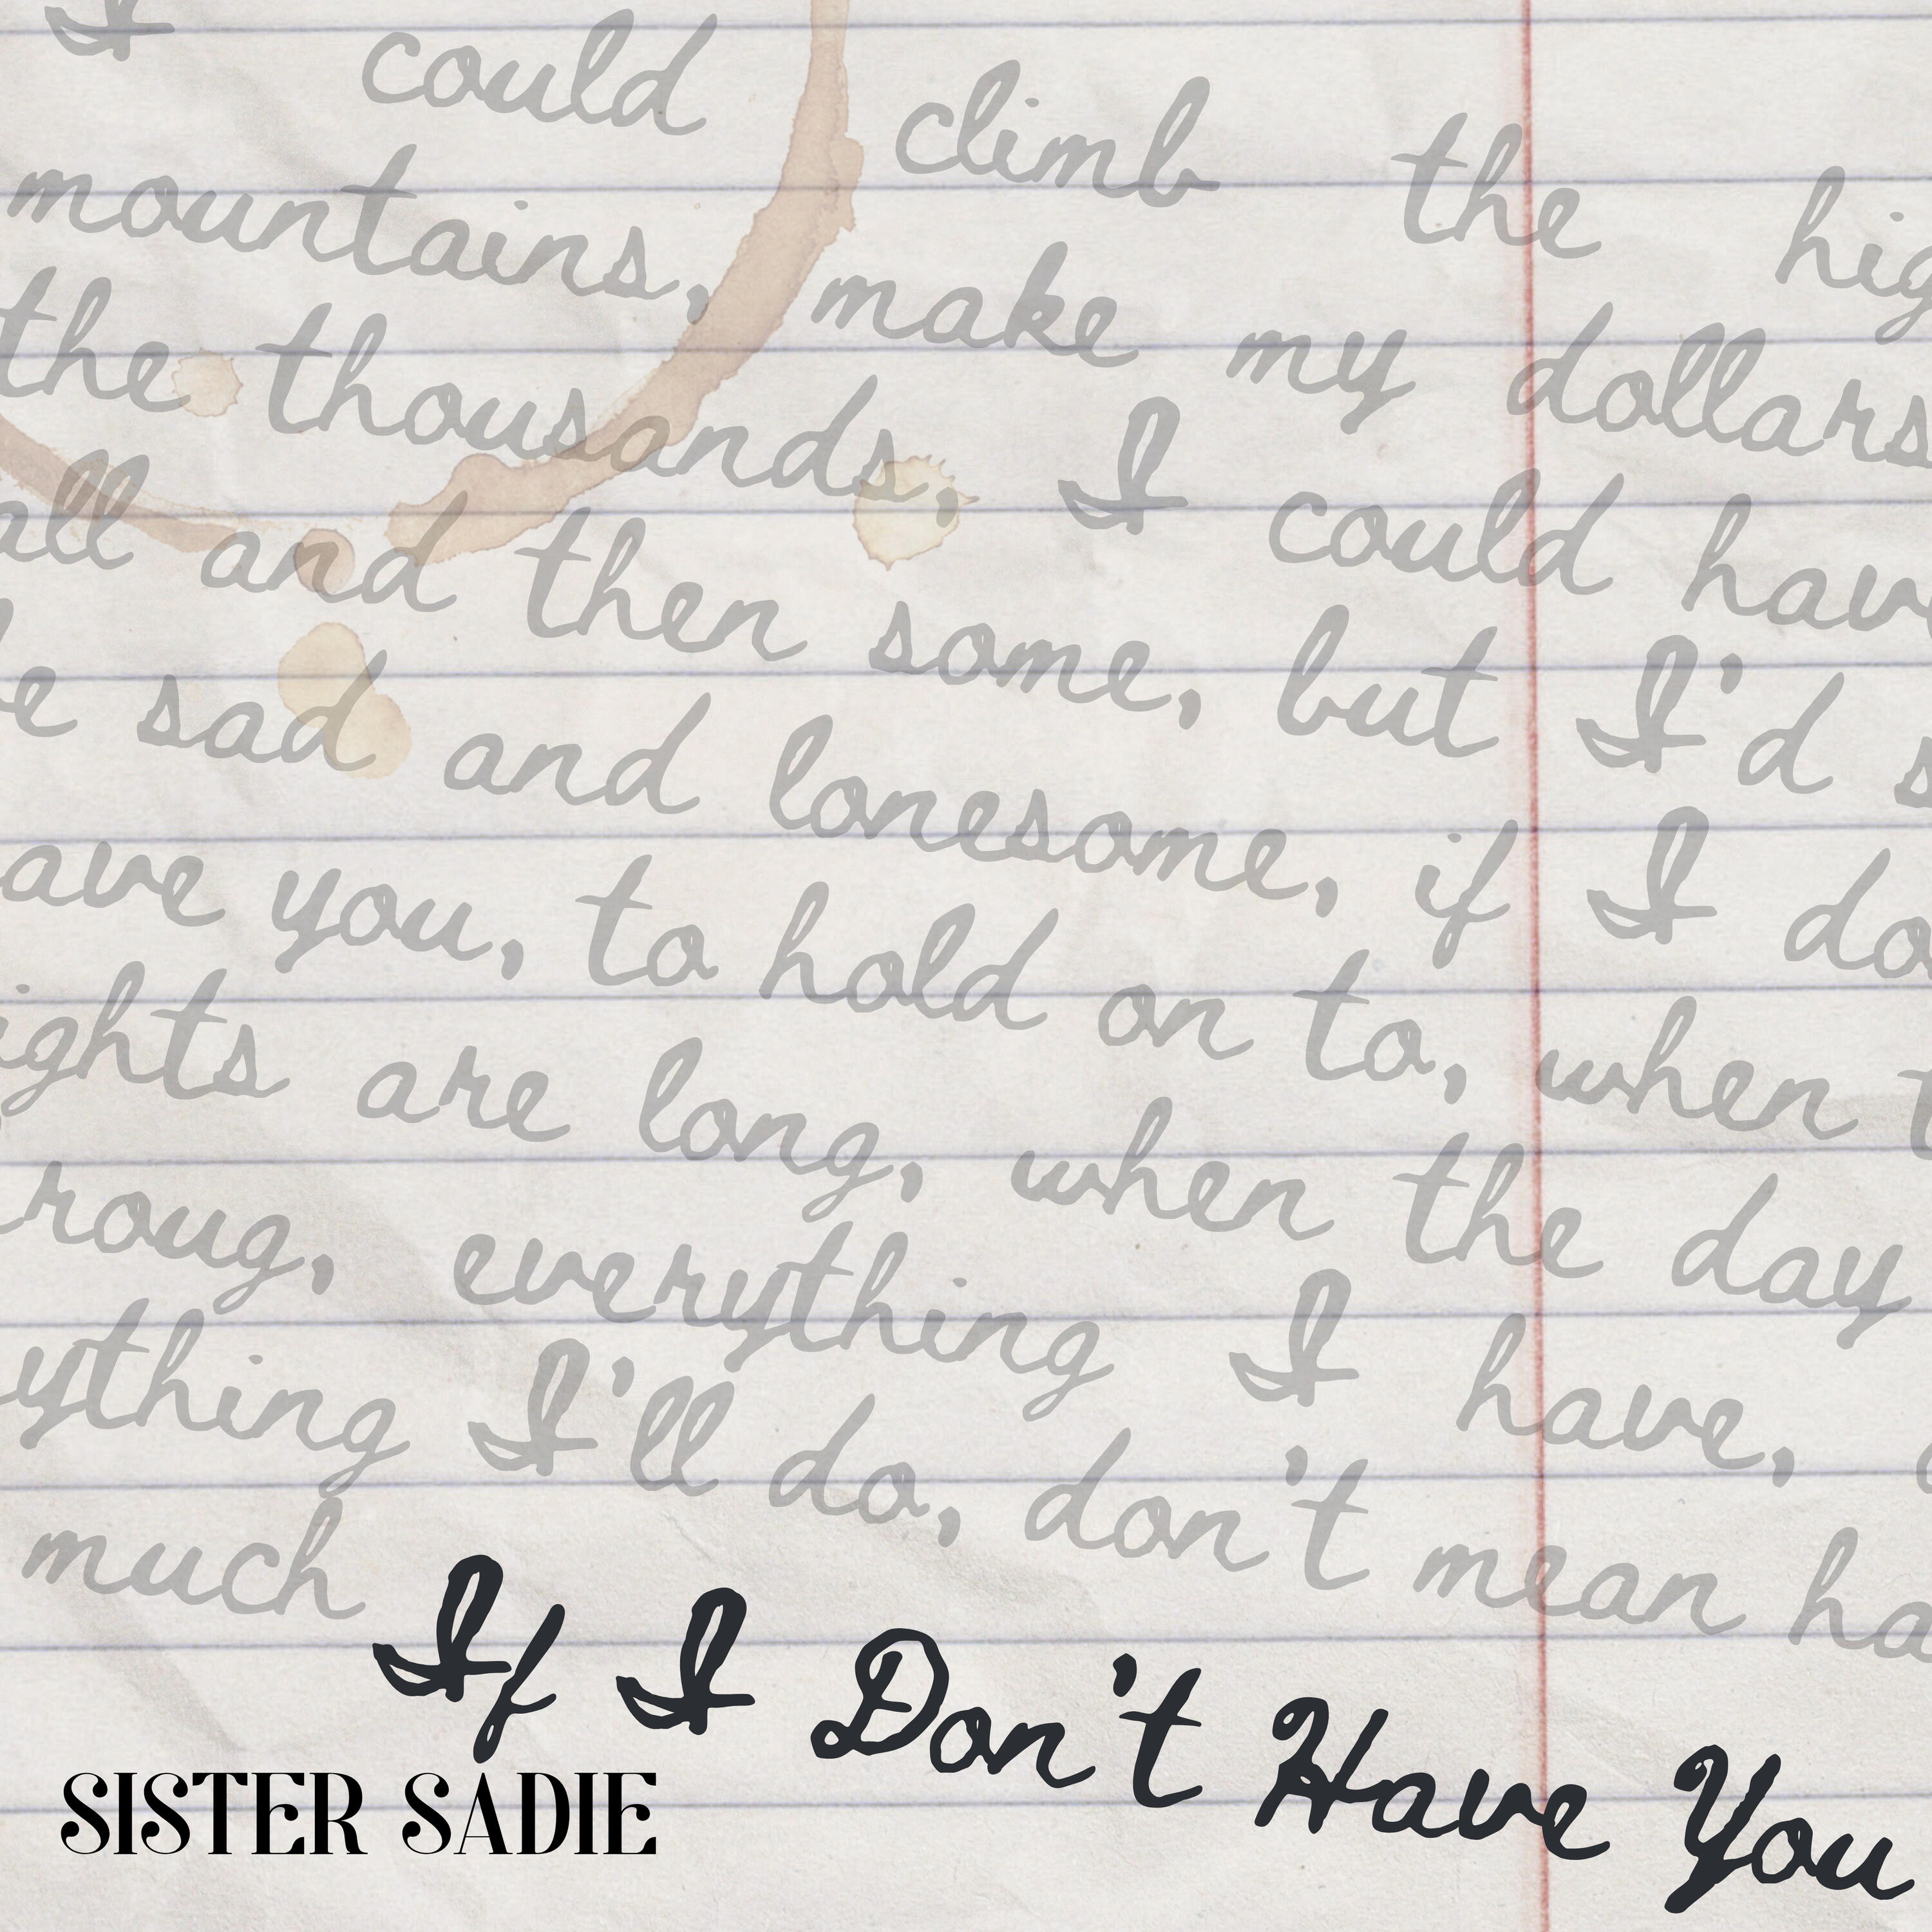 I could climb the hig
mountains, make my dollars
the thousands, I could have
all and then some, but I'd s
e sad and lonesome, if I do
ave you, to hold on to, when t
ights are long, when the day
roug, everything I have, 
ything I'll do, don't mean ha
much
If I Don't Have You
SISTER SADIE